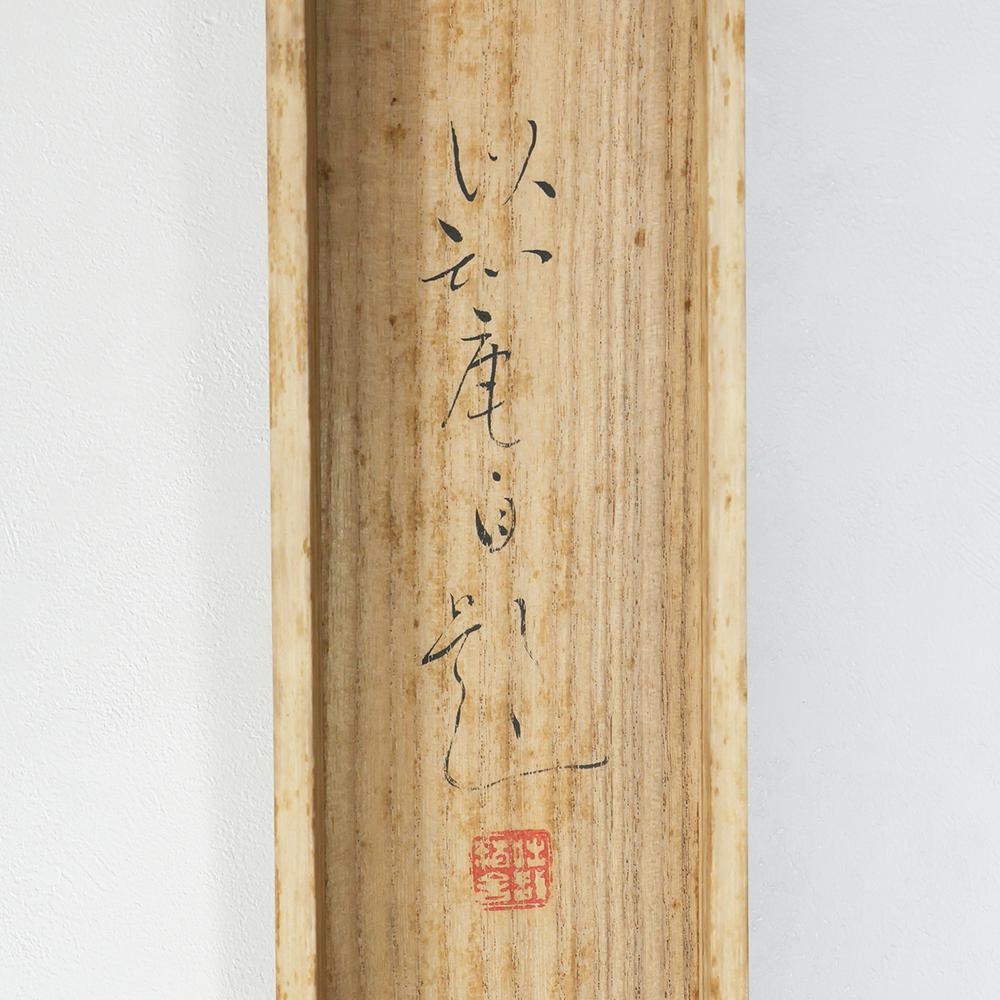 以知庵自題